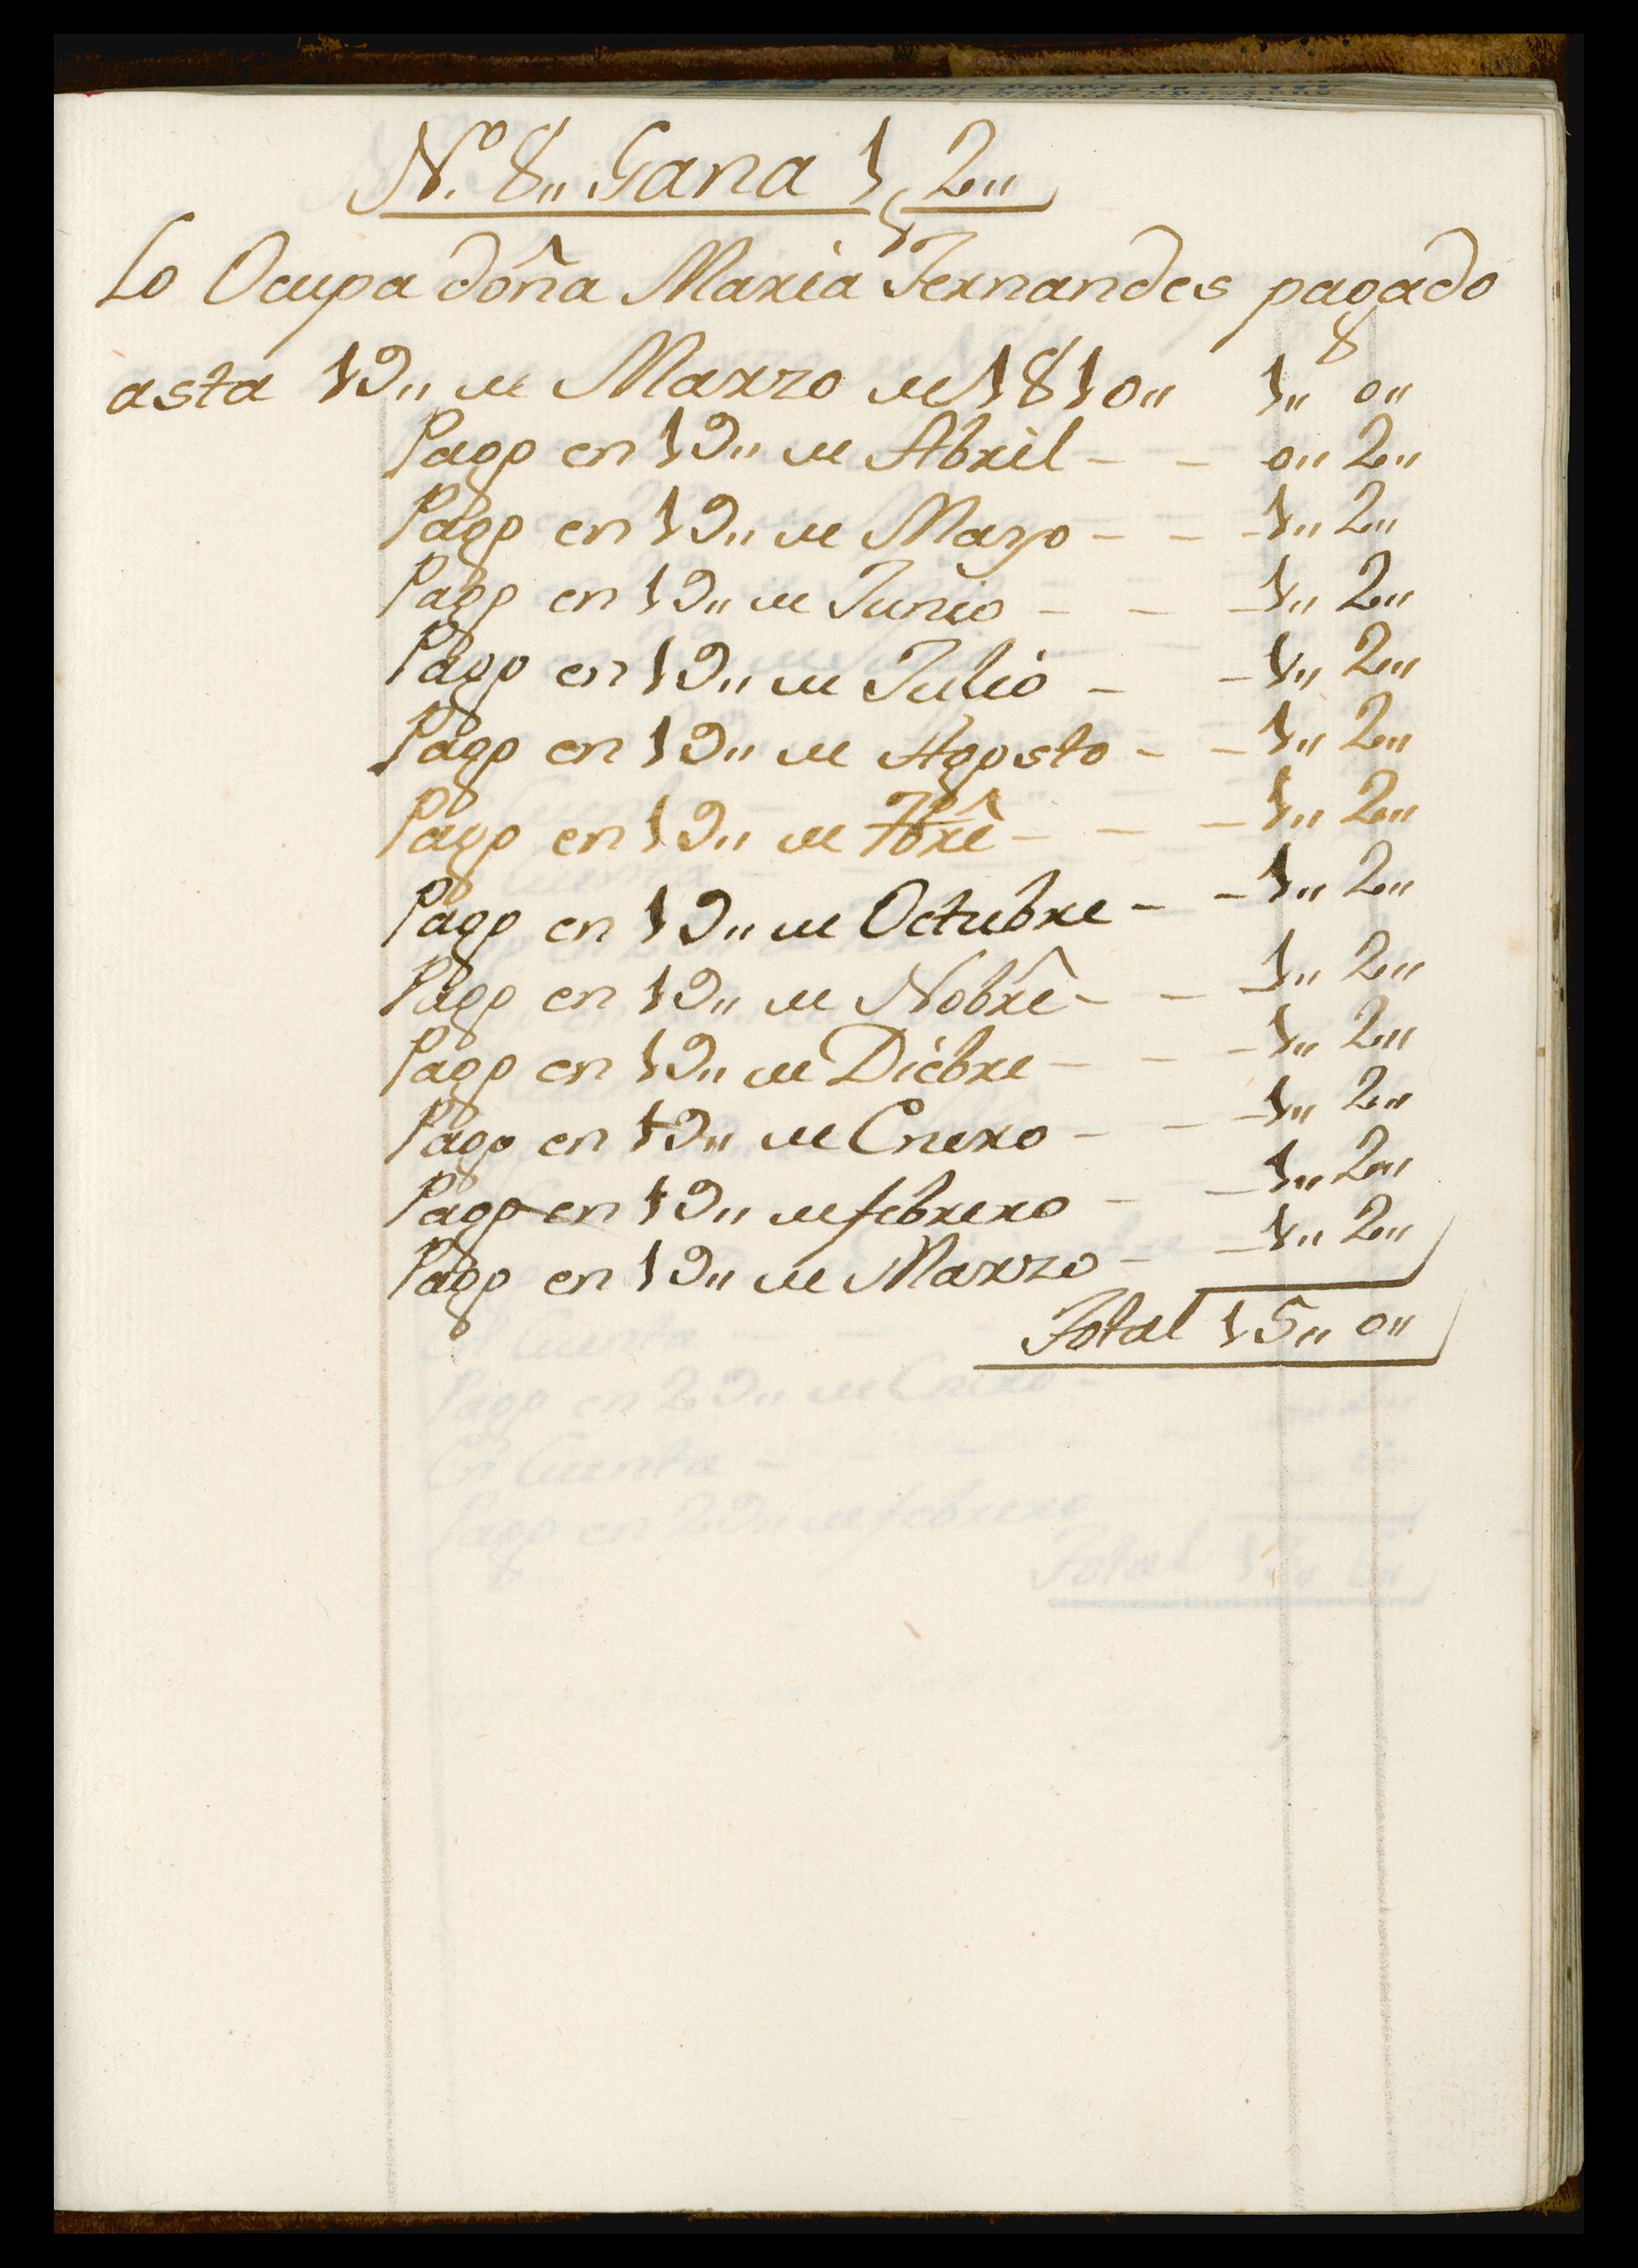 N.º 8,, Gana 1,, 2,,
Lo Ocupa doña Maria Fernandes pagado
asta 19,, de Marzo de 1810,, 1,, 0,,
Pago en 19,, de Abril - - 0,, 2,,
Pago en 19,, de Mayo - - - 1,, 2,,
Pago en 19,, de Junio - - - 1,, 2,,
Pago en 19,, de Julio - - 1,, 2,,
Pago en 19,, de Agosto - - 1,, 2,,
Pago en 19,, de 7brê - - - 1,, 2,,
Pago en 19,, de Octubre - - 1,, 2,,
Pago en 19,, de Nobrê - - - 1,, 2,,
Pago en 19,, de Diebre - - - 1,, 2,,
Pago en 19,, de Enero - - - 1,, 2,,
Pago en 19,, de febrero - - 1,, 2,,
Pago en 19,, de Marzo - - 1,, 2,,
Total 15,, 0,,